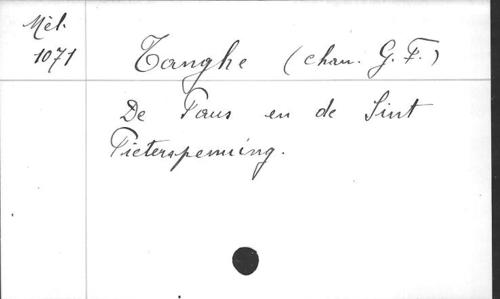 Mèl.
1071
Tanghe (chan. G. F.)
De Paus en de Sint
Pieterspenning.